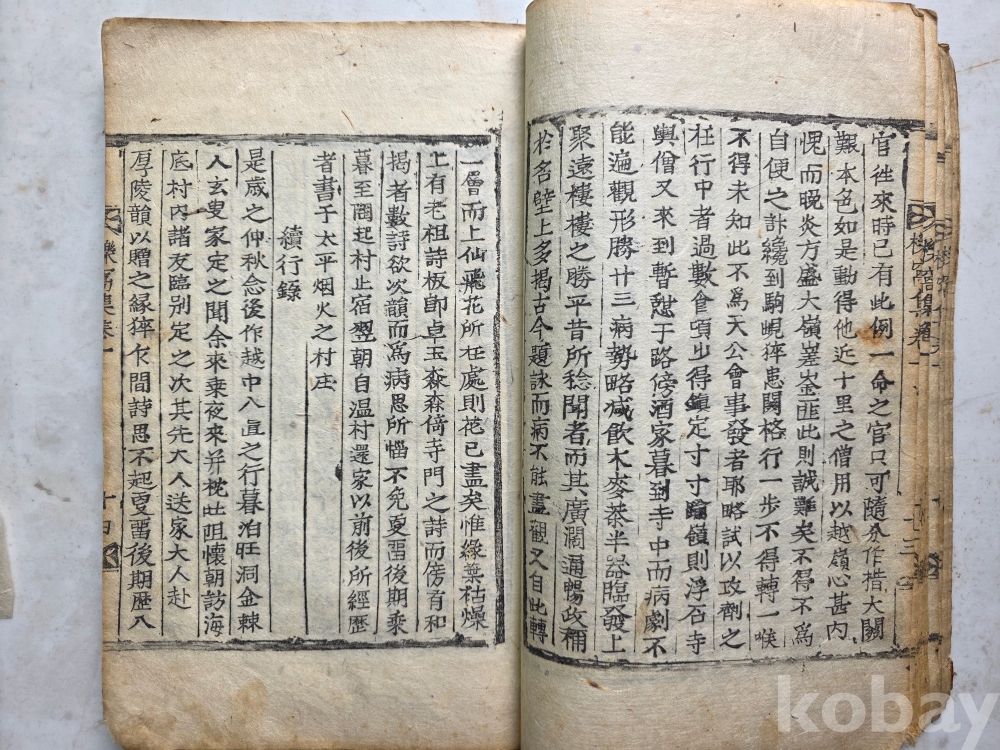 官徃來時已有此例一命之官只可隨分作措大關
艱本色如是動得他近十里之僧用以越嶺心甚內
愧而晩炎方盛大嶺崔崟匪此則誠難矣不得不爲
自便之計纔到駒峴猝患關格行一步不得轉一喉
不得未知此不爲天公會事發者耶略試以攻劑之
在行中者過數食頃少得鎭定寸寸踰嶺則浮石寺
輿僧又來到暫憇于路傍酒家暮到寺中而病劇不
能遍觀形勝廿三病勢略减飮木麥茶半器臨發上
聚遠樓樓之勝平昔所稔聞者而其廣濶通暢政稱
於名壁上多揭古今題詠而病不能盡觀又自此轉
一層而上仙飛花所在處則花已盡矣惟緣葉枯燥
上有老祖詩板卽卓玉森森倚寺門之詩而傍有和
揭者數詩欲次韻而爲病思所惱不免更留後期乘
暮至岡廷村止宿翌朝自溫村還家以前後所經歷
者書于太平烟火之村庄
續行錄
是歲之仲秋念後作越中八直之行暮泊旺洞金棘
人玄叟家定之聞余來乘夜來幷枕吐阻懷朝訪海
底村內諸友臨別定之次其先大人送家大人赴
厚陵韻以贈之緣猝乍間詩思不起更留後期歷八
集卷一
十四
kobay